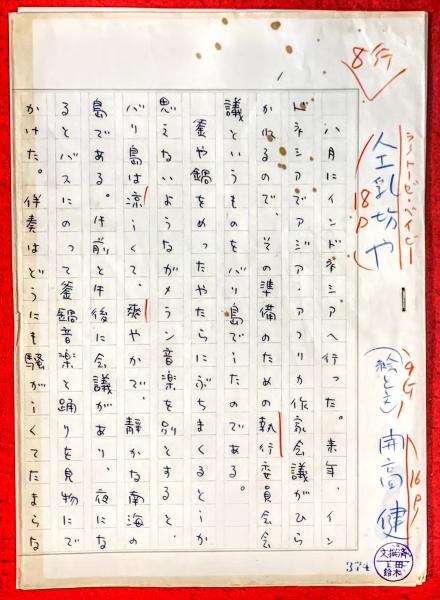 8行
ラクトーゼ・ベイビー
人工乳坊や
18P
9行
16P
(絵とも) 開高健
八月にインドネシアへ行った。来年、イン
ドネシアでアジア・アフリカ作家会議がひら
かれるので、その準備のための執行委員会会
議というものをバリ島でしたのである。
釜や鍋をめったやたらにぶちまくるとしか
思えないようなガメラン音楽を別とすると、
バリ島は涼しくて、爽やかで、静かな南海の
島である。午前と午後に会議があり、夜にな
るとバスにのって釜鍋音楽と踊りを見物にで
かけた。伴奏はどうにも騒がしくてたまらな
374
文撰済
鈴木